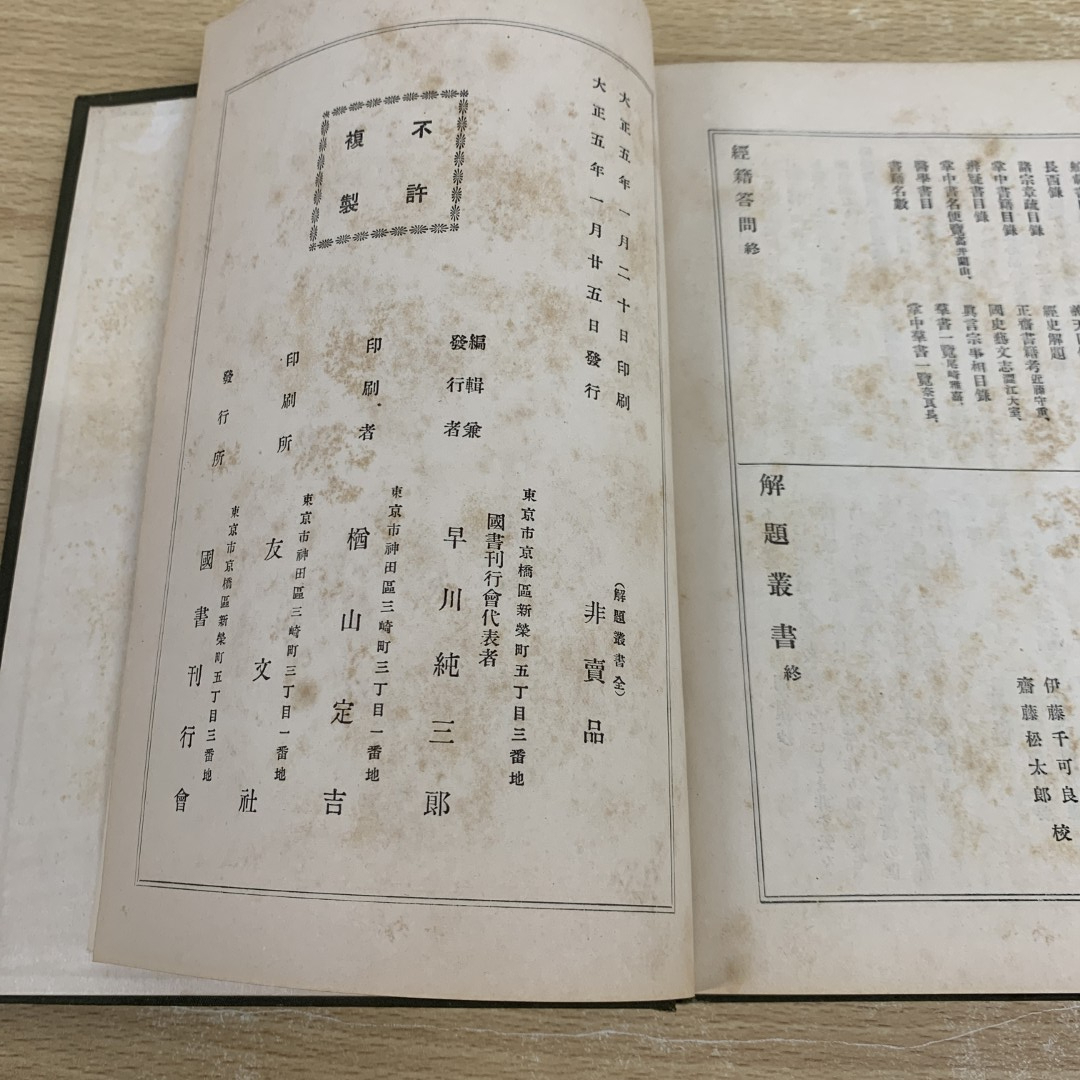 長酉錄
諸宗章疏目錄
掌中書籍目錄
辨疑書目錄
掌中書名便覽高井蘭山、
醫學書目
書籍名數
經史解題
正齋書籍考近藤守重、
國史藝文志
眞言宗事相目錄
群書一覽尾崎雅嘉、
掌中群書一覽
經籍答問終
伊藤千可良
齋藤松太郎
校
解題叢書終
大正五年一月二十日印刷
大正五年一月廿五日發行
不許
複製
(解題叢書全)
非賣品
編輯兼
發行者
東京市京橋區新榮町五丁目三番地
國書刊行會代表者
早川純三郎
印刷者
東京市神田區三崎町三丁目一番地
楢山定吉
印刷所
東京市神田區三崎町三丁目一番地
友文社
發行所
東京市京橋區新榮町五丁目三番地
國書刊行會